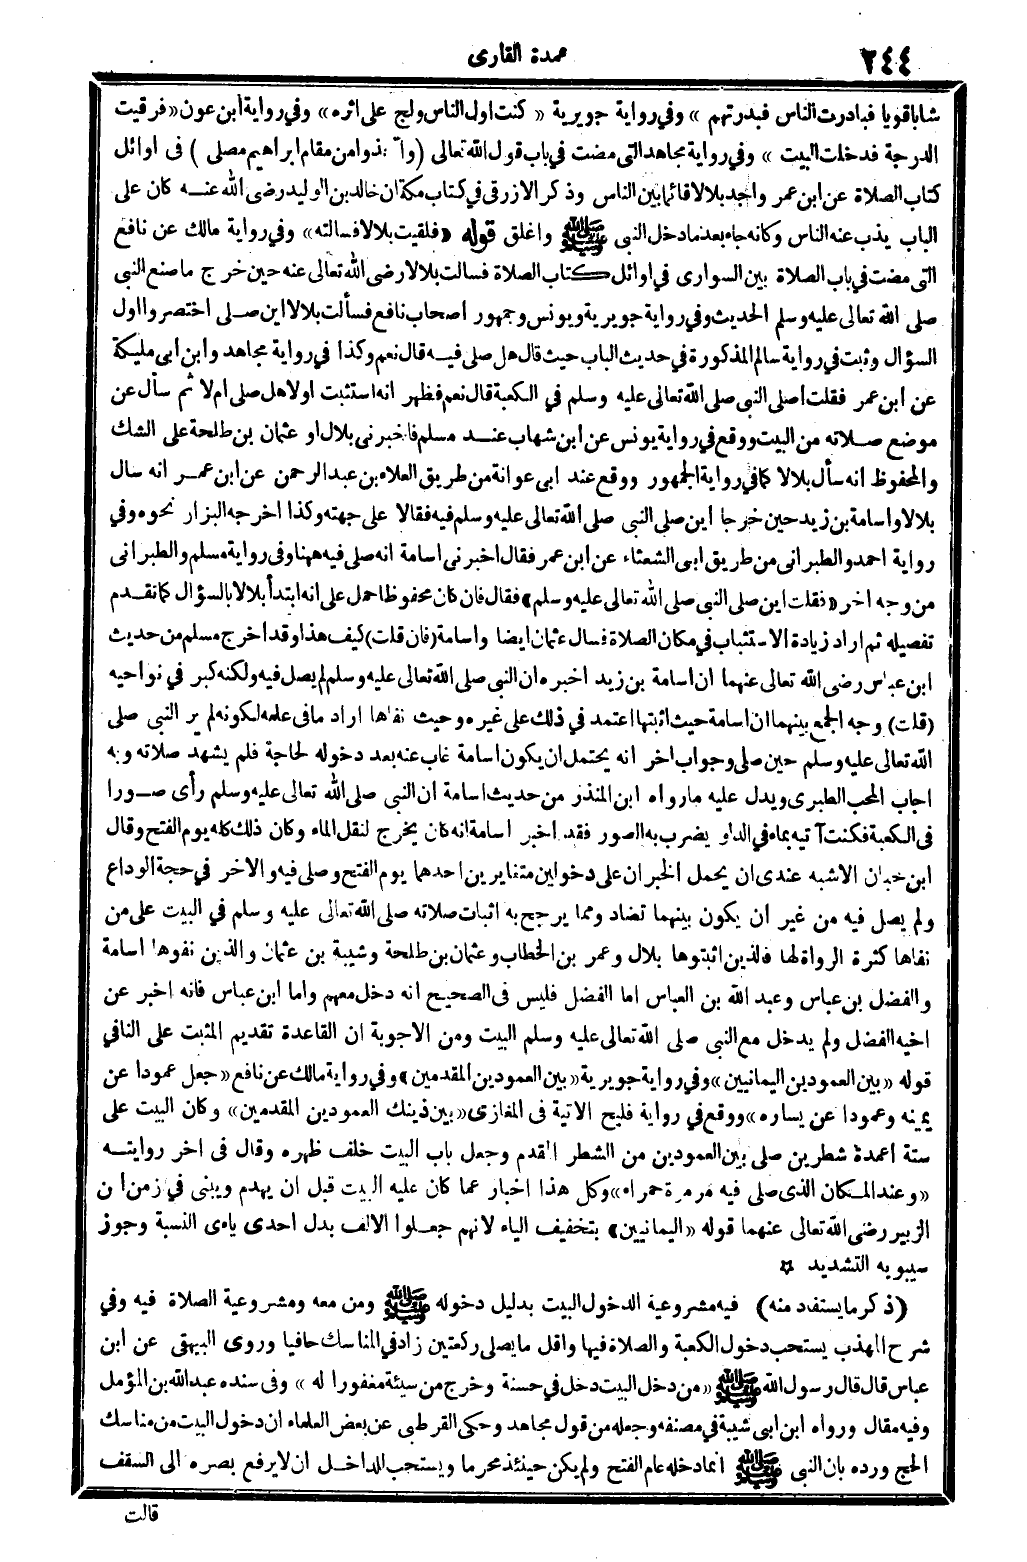 ٢٤٤
عمدة القارى
شابا قويا فبادرت الناس فبدرتهم » وفي رواية جويرية « كنت اول الناس ولج على اثره » وفي رواية ابن عون « فرقيت
الدرجة فدخلت البيت » وفي رواية مجاهد التى مضت في باب قول الله تعالى (واتخذوا من مقام ابراهيم مصلى ) فى اوائل
كتاب الصلاة عن ابن عمر واجد بلالا قائما بين الناس وذكر الازرقى في كتاب مكة ان خالد بن الوليد رضى الله عنه كان على
الباب يذب عنه الناس وكانه جاء بعد ما دخل النبى ﷺ واغلق قوله « فلقيت بلالا فسالته » وفي رواية مالك عن نافع
التى مضت في باب الصلاة بين السوارى في اوائل كتاب الصلاة فسالت بلالا رضى الله تعالى عنه حين خرج ما صنع النبى
صلى الله تعالى عليه وسلم الحديث وفي رواية جويرية ويونس وجمهور اصحاب نافع فسألت بلالا اين صلى اختصروا اول
السؤال وثبت في رواية سالم المذكورة في حديث الباب حيث قال هل صلى فيه قال نعم وكذا في رواية مجاهد وابن ابى مليكة
عن ابن عمر فقلت اصلى النبى صلى الله تعالى عليه وسلم في الكعبة قال نعم فظهر انه استثبت اولا هل صلى ام لا ثم سأل عن
موضع صلاته من البيت ووقع في رواية يونس عن ابن شهاب عند مسلم فاخبرنى بلال او عثمان بن طلحة على الشك
والمحفوظ انه سأل بلالا كما في رواية الجمهور ووقع عند ابى عوانة من طريق العلاء بن عبد الرحمن عن ابن عمر انه سال
بلالا واسامة بن زيد حين خرجا اين صلى النبى صلى الله تعالى عليه وسلم فيه فقالا على جهته وكذا اخرجه البزار نحوه وفي
رواية احمد والطبرانى من طريق ابى الشعثاء عن ابن عمر فقال اخبرنى اسامة انه صلى فيه ههنا وفى رواية مسلم والطبرانى
من وجه اخر « فقلت اين صلى النبى صلى الله تعالى عليه وسلم » فقال فان كان محفوظا حمل على انه ابتدأ بلالا بالسؤال كما تقدم
تفصيله ثم اراد زيادة الاستثبات في مكان الصلاة فسال عثمان ايضا واسامة (فان قلت) كيف هذا وقد اخرج مسلم من حديث
ابن عباس رضى الله تعالى عنهما ان اسامة بن زيد اخبره ان النبى صلى الله تعالى عليه وسلم لم يصل فيه ولكنه كبر في نواحيه
(قلت) وجه الجمع بينهما ان اسامة حيث اثبتها اعتمد في ذلك على غيره وحيث نفاها اراد ما في علمه لكونه لم ير النبى صلى
الله تعالى عليه وسلم حين صلى وجواب اخر انه يحتمل ان يكون اسامة غاب عنه بعد دخوله لحاجة فلم يشهد صلاته وبه
اجاب المحب الطبرى ويدل عليه ما رواه ابن المنذر من حديث اسامة ان النبى صلى الله تعالى عليه وسلم رأى صورا
فى الكعبة فكنت آتيه بماء في الدلو يضرب به الصور فقد اخبر اسامة انه كان يخرج لنقل الماء وكان ذلك كله يوم الفتح وقال
ابن حبان الاشبه عندى ان يحمل الخبران على دخولين متغايرين احدهما يوم الفتح وصلى فيه والاخر في حجة الوداع
ولم يصل فيه من غير ان يكون بينهما تضاد ومما يرجح به اثبات صلاته صلى الله تعالى عليه وسلم في البيت على من
نفاها كثرة الرواة لها فالذين اثبتوها بلال وعمر بن الخطاب وعثمان بن طلحة وشيبة بن عثمان والذين نفوها اسامة
والفضل بن عباس وعبد الله بن العباس اما الفضل فليس فى الصحيح انه دخل معهم واما ابن عباس فانه اخبر عن
اخيه الفضل ولم يدخل مع النبى صلى الله تعالى عليه وسلم البيت ومن الاجوبة ان القاعدة تقديم المثبت على النافي
قوله « بين العمودين اليمانيين » وفي رواية جويرية « بين العمودين المقدمين » وفي رواية مالك عن نافع « جعل عمودا عن
يمينه وعمودا عن يساره » ووقع في رواية فليح الاتية فى المغازى « بين ذينك العمودين المقدمين » وكان البيت على
ستة أعمدة شطرين صلى بين العمودين من الشطر المقدم وجعل باب البيت خلف ظهره وقال فى اخر روايته
« وعند المكان الذى صلى فيه مرمرة حمراء » وكل هذا اخبار عما كان عليه البيت قبل ان يهدم ويبنى في زمن ابن
الزبير رضى الله تعالى عنهما قوله « اليمانيين » بتخفيف الياء لانهم جعلوا الالف بدل احدى ياءى النسبة وجوز
سيبويه التشديد ✡
(ذكر ما يستفاد منه) فيه مشروعية الدخول البيت بدليل دخوله ﷺ ومن معه ومشروعية الصلاة فيه وفي
شرح المهذب يستحب دخول الكعبة والصلاة فيها واقل ما يصلى ركعتين زاد في المناسك حافيا وروى البيهقى عن ابن
عباس قال قال رسول الله ﷺ « من دخل البيت دخل في حسنة وخرج من سيئة مغفورا له » وفى سنده عبد الله بن المؤمل
وفيه مقال ورواه ابن ابى شيبة في مصنفه وجعله من قول مجاهد وحكى القرطبى عن بعض العلماء ان دخول البيت من مناسك
الحج ورده بان النبى ﷺ انما دخله عام الفتح ولم يكن حينئذ محرما ويستحب للداخل ان لا يرفع بصره الى السقف
قالت